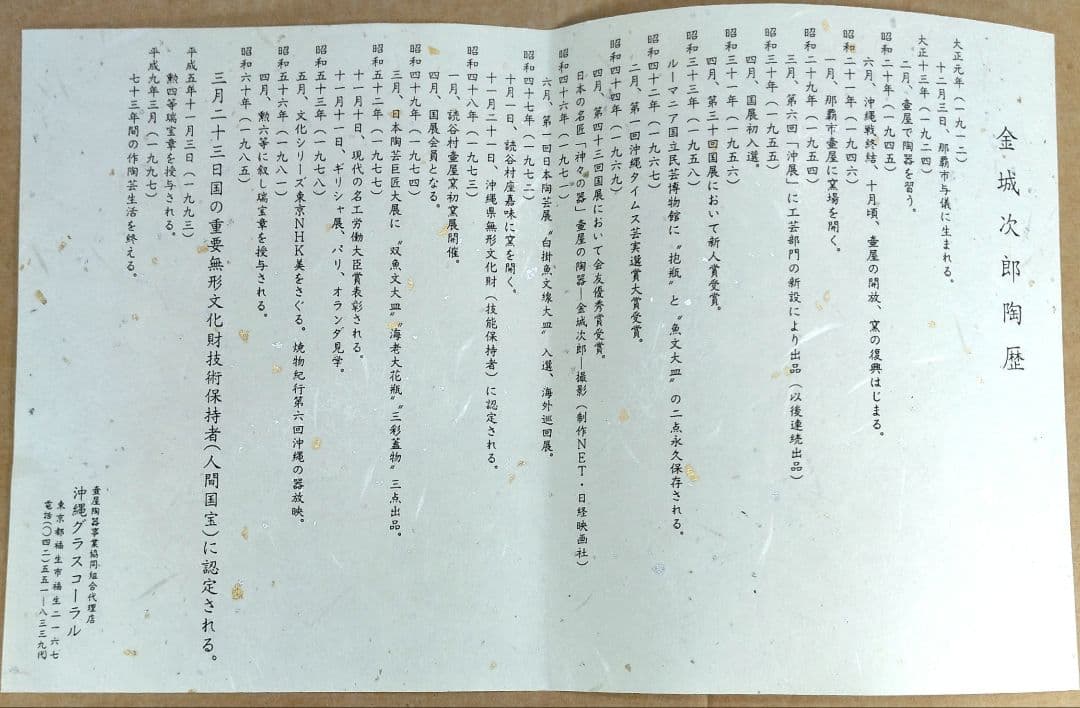 金城次郎陶歴
大正元年（一九一二）
十二月三日、那覇市与儀に生まれる。
大正十三年（一九二四）
二月、壷屋で陶器を習う。
昭和二十年（一九四五）
六月、沖縄戦終結、十月頃、壷屋の開放、窯の復興はじまる。
昭和二十一年（一九四六）
一月、那覇市壷屋に窯場を開く。
昭和二十九年（一九五四）
三月、第六回「沖展」に工芸部門の新設により出品（以後連続出品）
昭和三十年（一九五五）
四月、国展初入選。
昭和三十一年（一九五六）
四月、第三十回国展において新人賞受賞。
昭和三十三年（一九五八）
ルーマニア国立民芸博物館に〝抱瓶〟と〝魚文大皿〟の二点永久保存される。
昭和四十二年（一九六七）
二月、第一回沖縄タイムス芸実選賞大賞受賞。
昭和四十四年（一九六九）
四月、第四十三回国展において会友優秀賞受賞。
日本の名匠「神々の器」壷屋の陶器―金城次郎―撮影（制作ＮＥＴ・日経映画社）
昭和四十六年（一九七一）
六月、第一回日本陶芸展〝白掛魚文線大皿〟入選、海外巡回展。
昭和四十七年（一九七二）
十月一日、読谷村座嘉味に窯を開く。
十一月二十一日、沖縄県無形文化財（技能保持者）に認定される。
昭和四十八年（一九七三）
一月、読谷村壷屋窯初窯展開催。
四月、国展会員となる。
昭和四十九年（一九七四）
三月、日本陶芸巨匠大展に〝双魚文大皿〟〝海老大花瓶〟〝三彩蓋物〟三点出品。
昭和五十二年（一九七七）
十一月十日、現代の名工労働大臣賞表彰される。
十一月十一日、ギリシャ展、パリ、オランダ見学。
昭和五十三年（一九七八）
五月、文化シリーズ東京ＮＨＫ美をさぐる。焼物紀行第六回沖縄の器放映。
昭和五十六年（一九八一）
四月、勲六等に叙し瑞宝章を授与される。
昭和六十年（一九八五）
三月二十三日国の重要無形文化財技術保持者（人間国宝）に認定される。
平成五年十一月三日（一九九三）
勲四等瑞宝章を授与される。
平成九年三月（一九九七）
七十三年間の作陶芸生活を終える。
壷屋陶器事業協同組合代理店
沖縄グラスコーラル
東京都福生市福生二一六七
電話（〇四二）五五一―八三三九